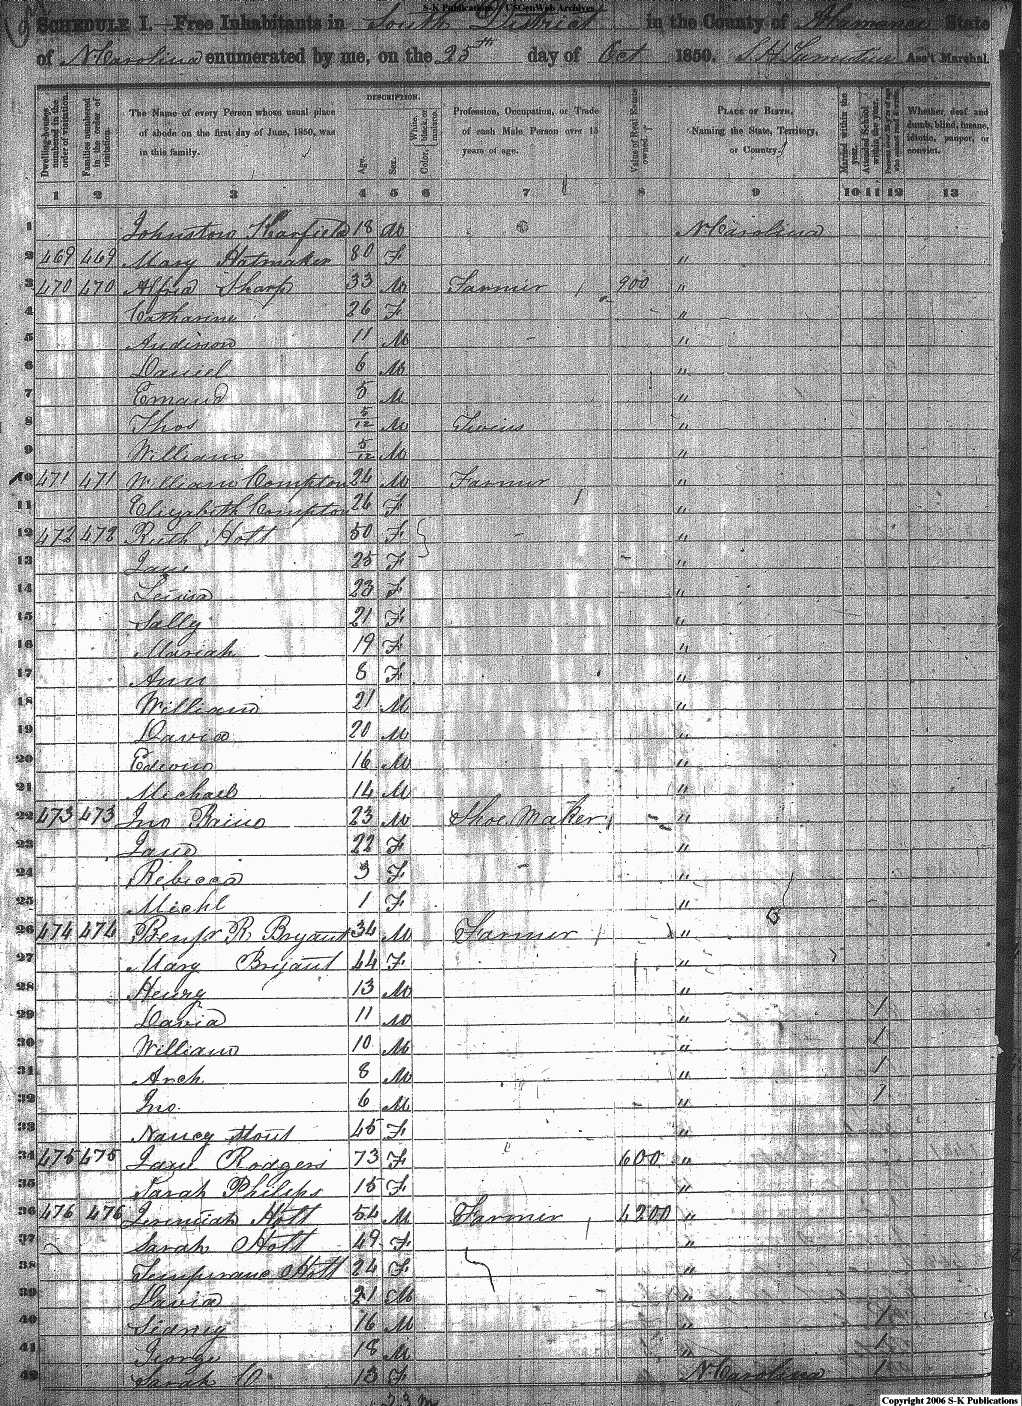 S-K Publications - USGenWeb Archives
SCHEDULE I.—Free Inhabitants in South District in the County of Alamance State
of N Carolina enumerated by me, on the 25th day of Oct 1850. Ass't Marshal.
Dwelling-houses numbered in the order of visitation.
Families numbered in the order of visitation.
The Name of every Person whose usual place of abode on the first day of June, 1850, was in this family.
DESCRIPTION.
Age.
Sex.
Color, White, black, or mulatto.
Profession, Occupation, or Trade of each Male Person over 15 years of age.
Value of Real Estate owned.
PLACE OF BIRTH, Naming the State, Territory, or Country.
Married within the year.
Attended School within the year.
Whether deaf and dumb, blind, insane, idiotic, pauper, or convict.
1 2 3 4 5 6 7 8 9 10 11 12 13
1 Johnston 18 M N Carolina
2 469 469 Mary 80 F "
3 470 470 Alfred Sharp 33 M Farmer 900 "
4 Catharine 26 F "
5 Anderson 11 M "
6 Daniel 6 M "
7 5 M "
8 Thos 5/12 M Twins "
9 William 5/12 M "
10 471 471 William Compton 24 M Farmer "
11 Elizabeth Compton 26 F "
12 472 472 Ruth Holt 50 F "
13 Jane 25 F "
14 23 F "
15 Sally 21 F "
16 Mariah 19 F "
17 Ann 8 F "
18 William 21 M "
19 David 20 M "
20 16 M "
21 Michael 14 M "
22 473 473 Jno 23 M Shoe Maker "
23 Jane 22 F "
24 Rebecca 3 F "
25 Michl 1 F "
26 474 474 Benj R Bryant 34 M Farmer "
27 Mary Bryant 44 F "
28 Henry 13 M "
29 David 11 M " 1
30 William 10 M " 1
31 Arch 8 M " 1
32 Jno. 6 M " 1
33 Nancy Stout 45 F "
34 475 475 Jane Rodgers 73 F 600 "
35 Sarah Philips 15 F "
36 476 476 Jeremiah Holt 54 M Farmer 4200 "
37 Sarah Holt 49 F "
38 Temperanc Holt 24 F "
39 David 21 M "
40 Sidney 16 M " 1
41 George 18 M " 1
42 Sarah C. 13 F N Carolina 1
23 m
Copyright 2006 S-K Publications